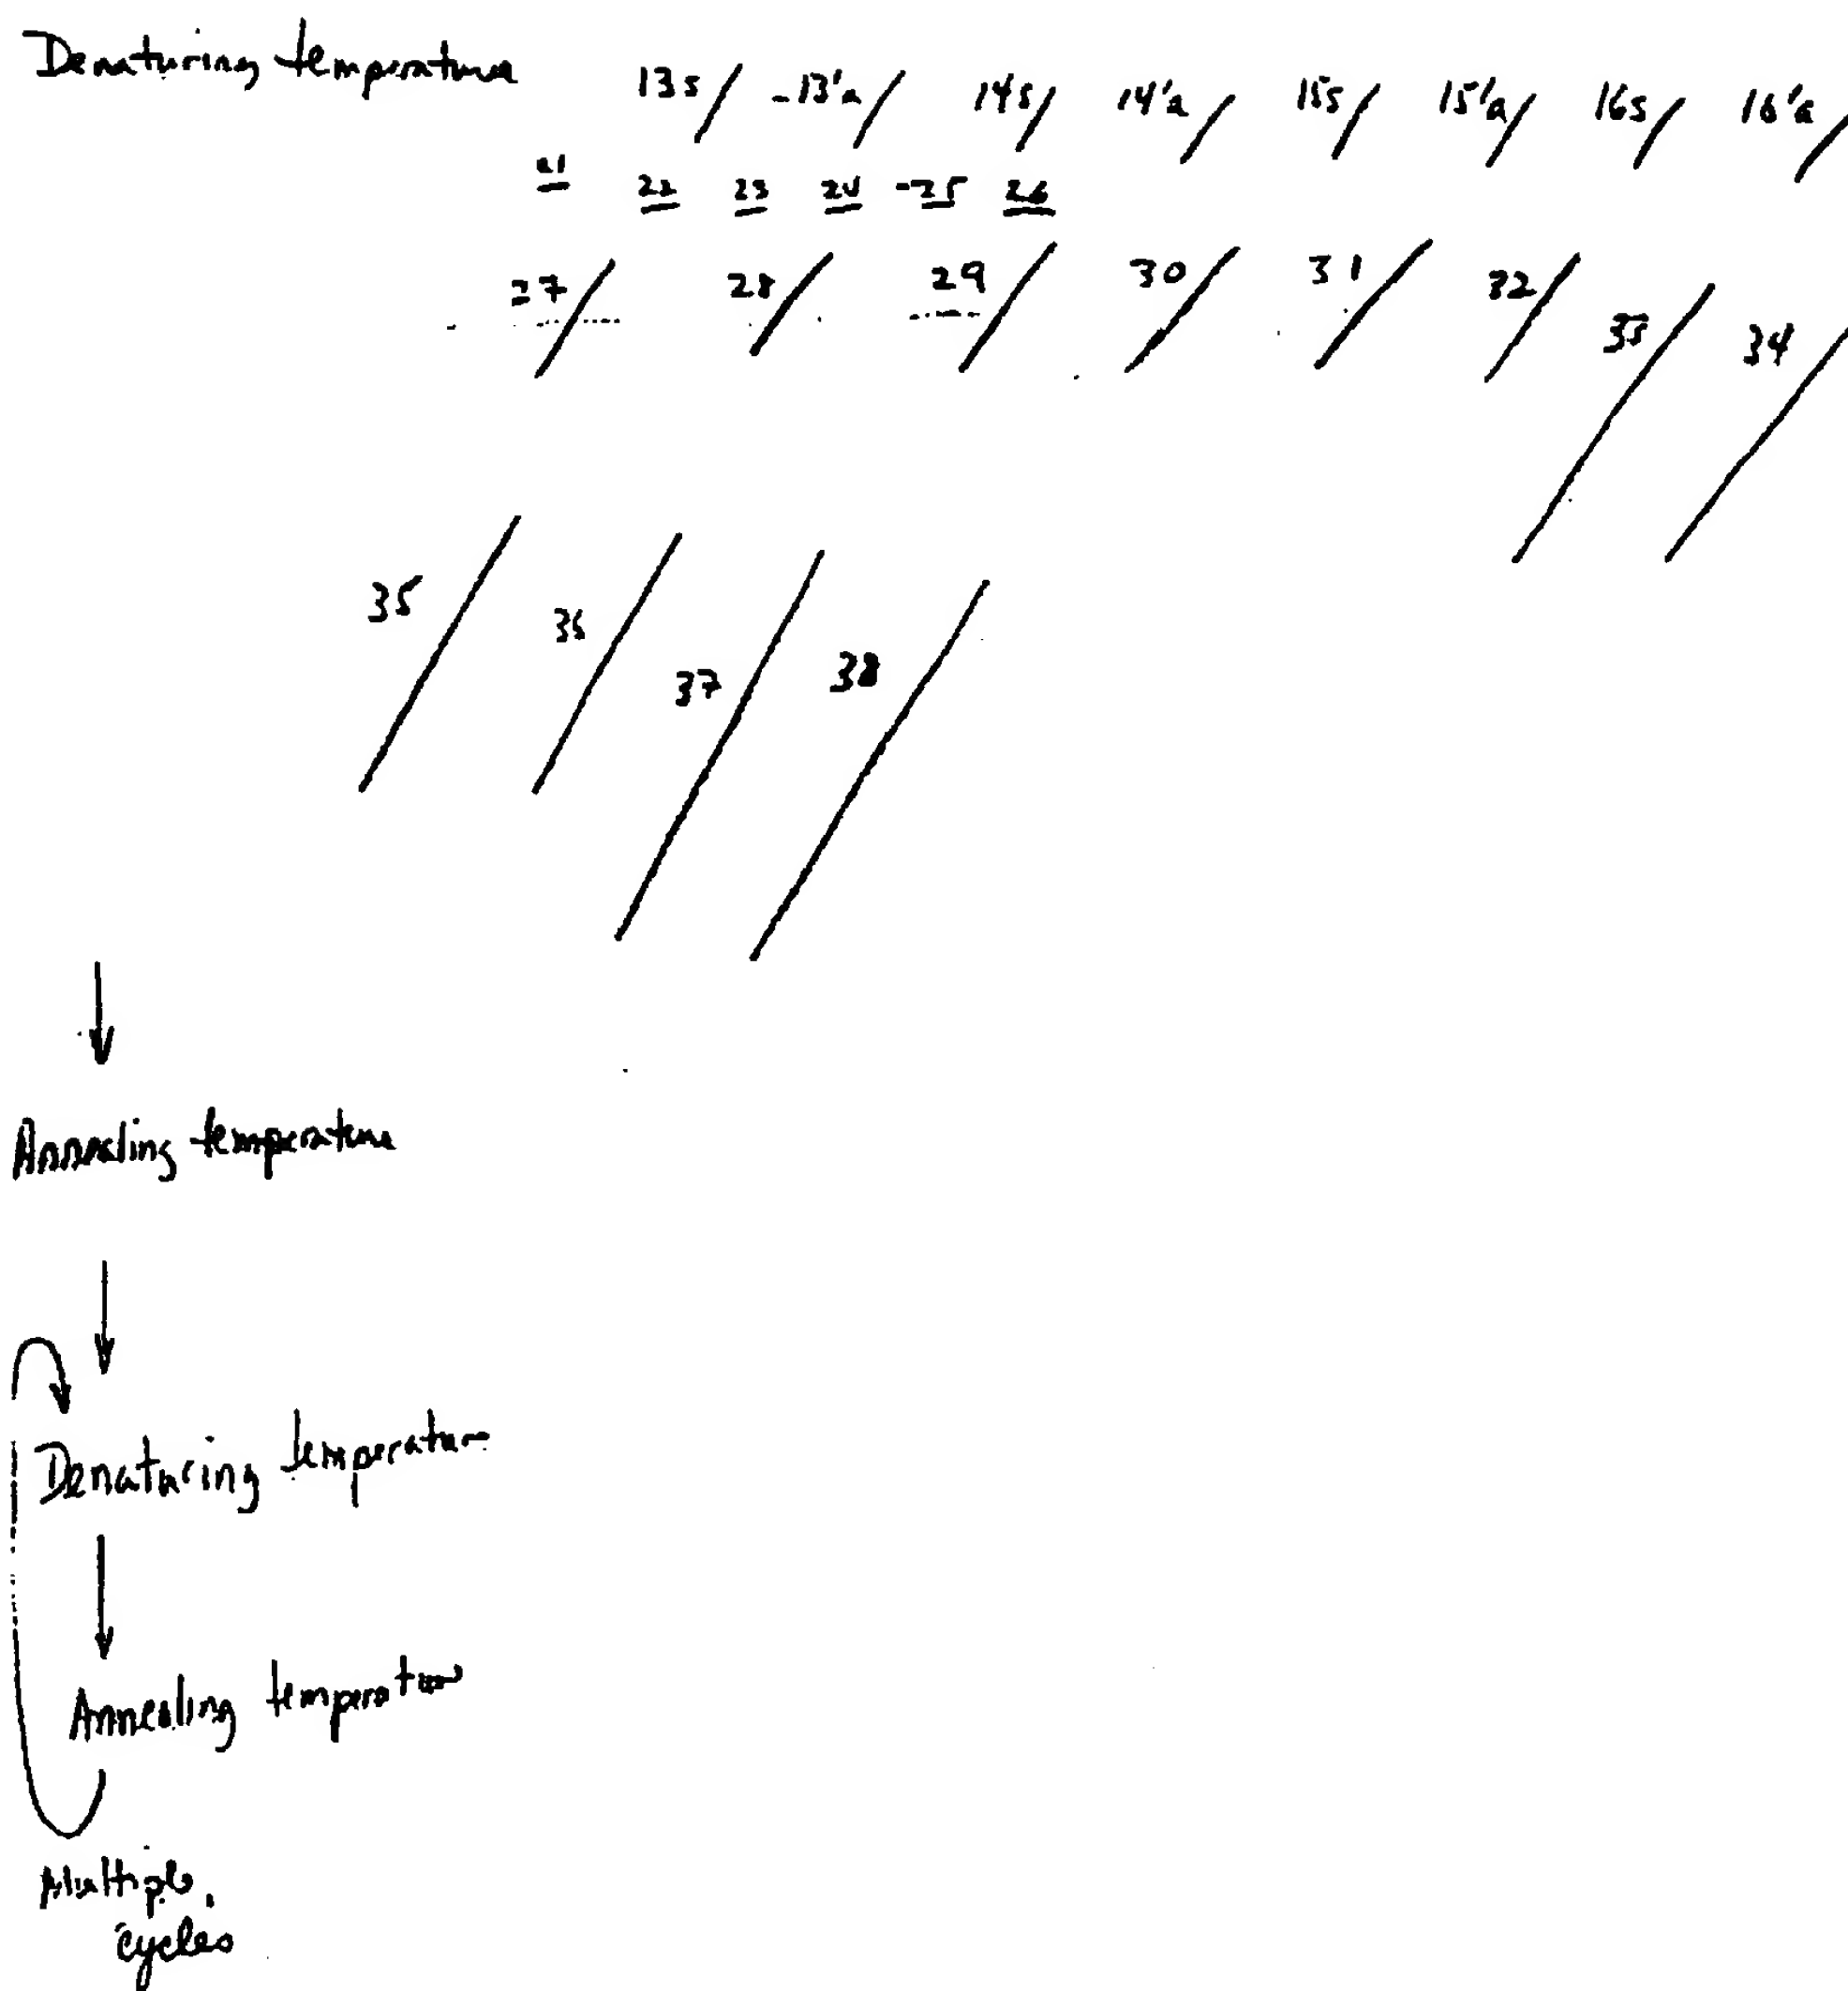 Denaturing temperature 13s 13'a 14s 14'a 15s 15'a 16s 16'a
21 22 23 24 25 26
27 28 29 30 31 32 33 34
35 36 37 38
Annealing temperature
Denaturing temperature
Annealing temperature
Multiple
cycles